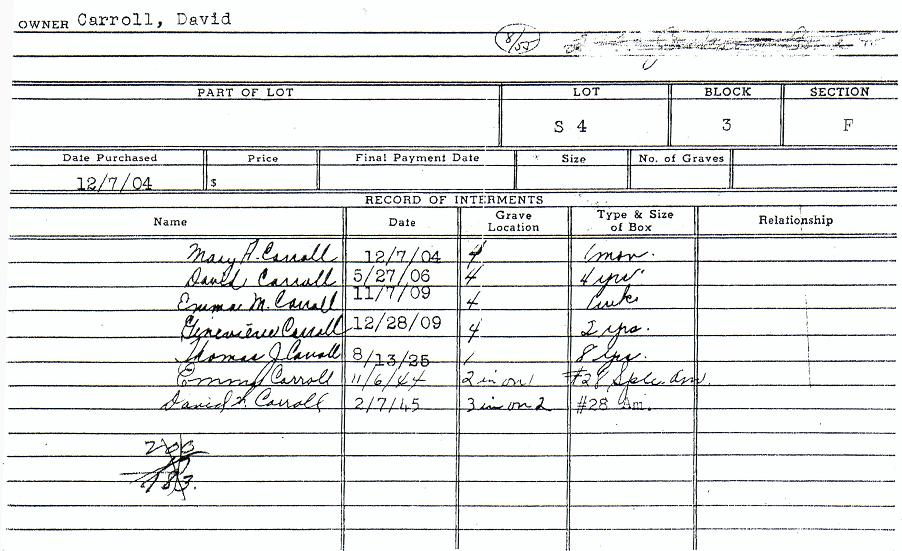 OWNER Carroll, David
8/55
PART OF LOT LOT BLOCK SECTION
S 4 3 F
Date Purchased Price Final Payment Date Size No. of Graves
12/7/04 $
RECORD OF INTERMENTS
Name Date Grave Location Type & Size of Box Relationship
Mary A. Carroll 12/7/04 4 1 mon.
David Carroll 5/27/06 4 4 yrs
Emma M. Carroll 11/7/09 4
Genevieve Carroll 12/28/09 4 2 yrs.
Thomas J. Carroll 8/13/25 1 8 yrs.
Emma Carroll 11/6/44 2 in on 1 #28 Am.
David Carroll 2/7/45 3 in on 2 #28 Am.
200
183.